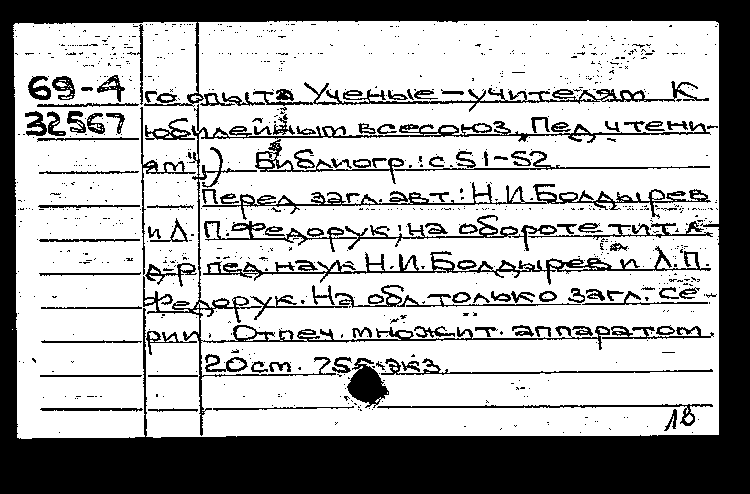 69-4 го опыта Ученые-учителям К
32567 юбилейным всесоюз. Пед. чтени-
ям".) Библиогр.: с. 51-52
Перед загл. авт.: Н.И.Болдырев
и Л. П. Федорук; на обороте тит. л.
д-р пед. наук Н.И.Болдырев и Л.П.
Федорук. На обл. только загл. се-
рии. Отпеч. множит. аппаратом.
20 cm. 755 экз.
18